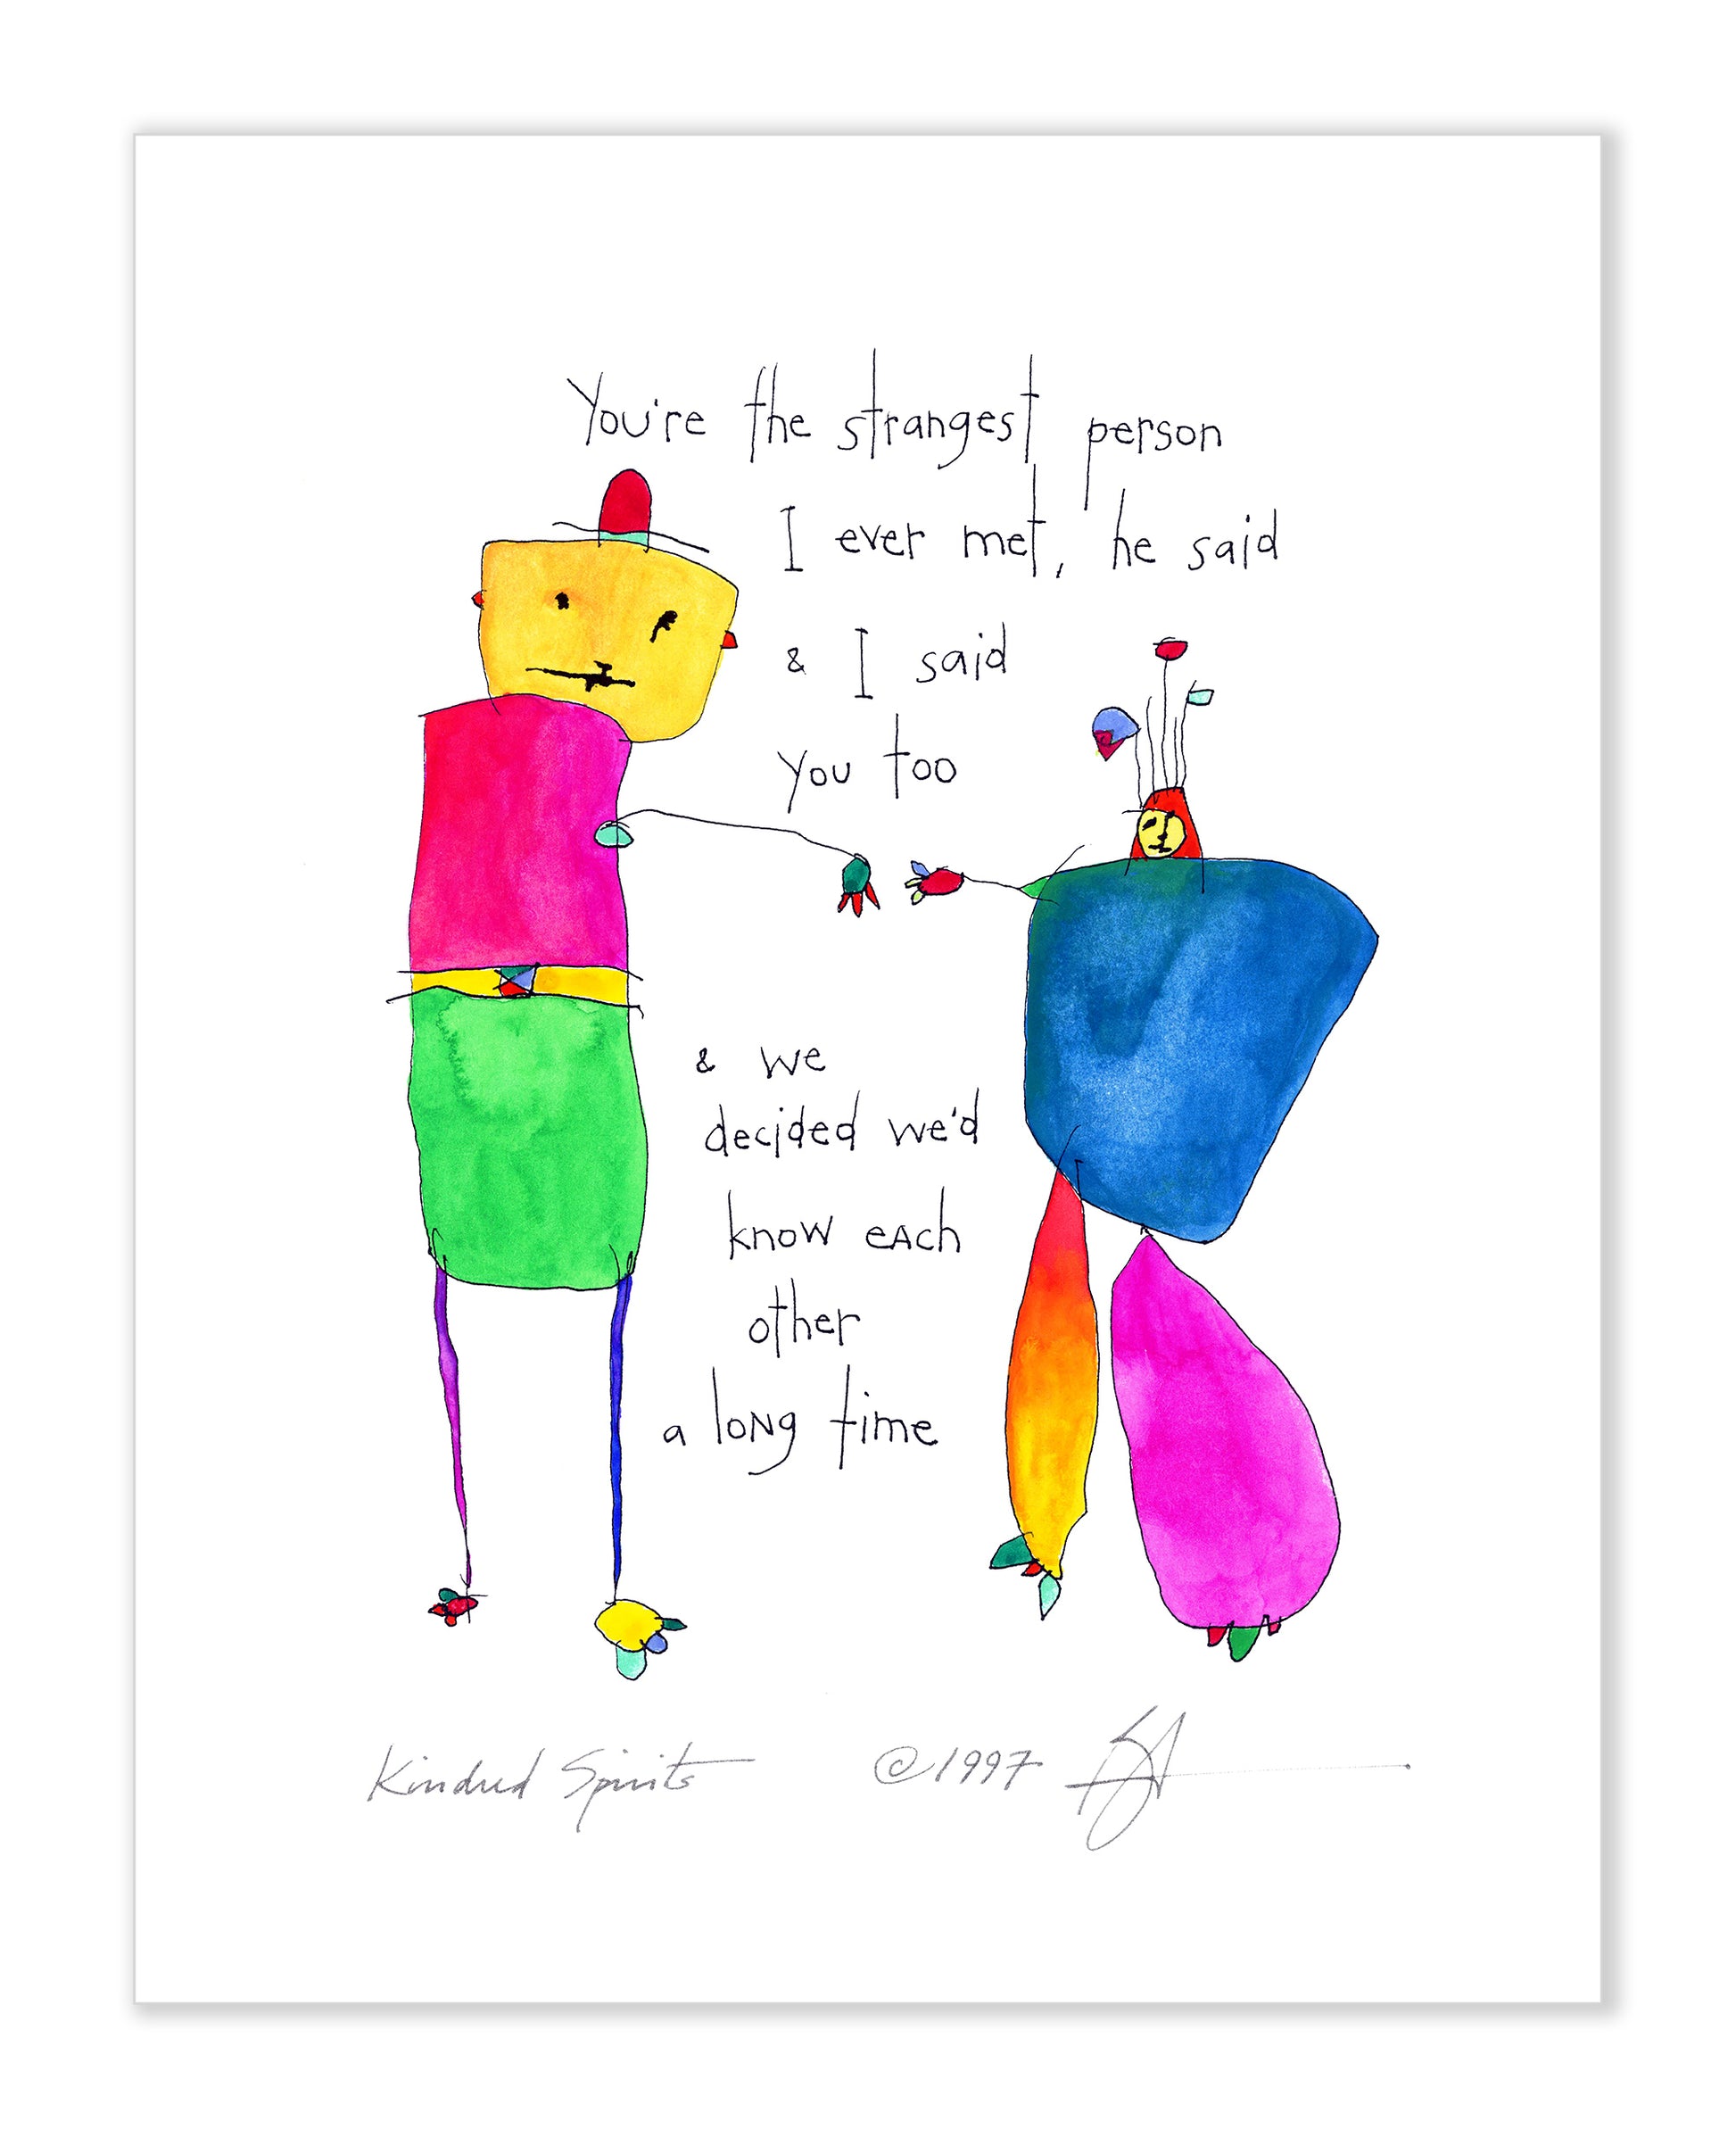 You're the strangest person
I ever met, he said
& I said
you too
& we
decided we'd
know each
other
a long time
Kindred Spirits ©1997